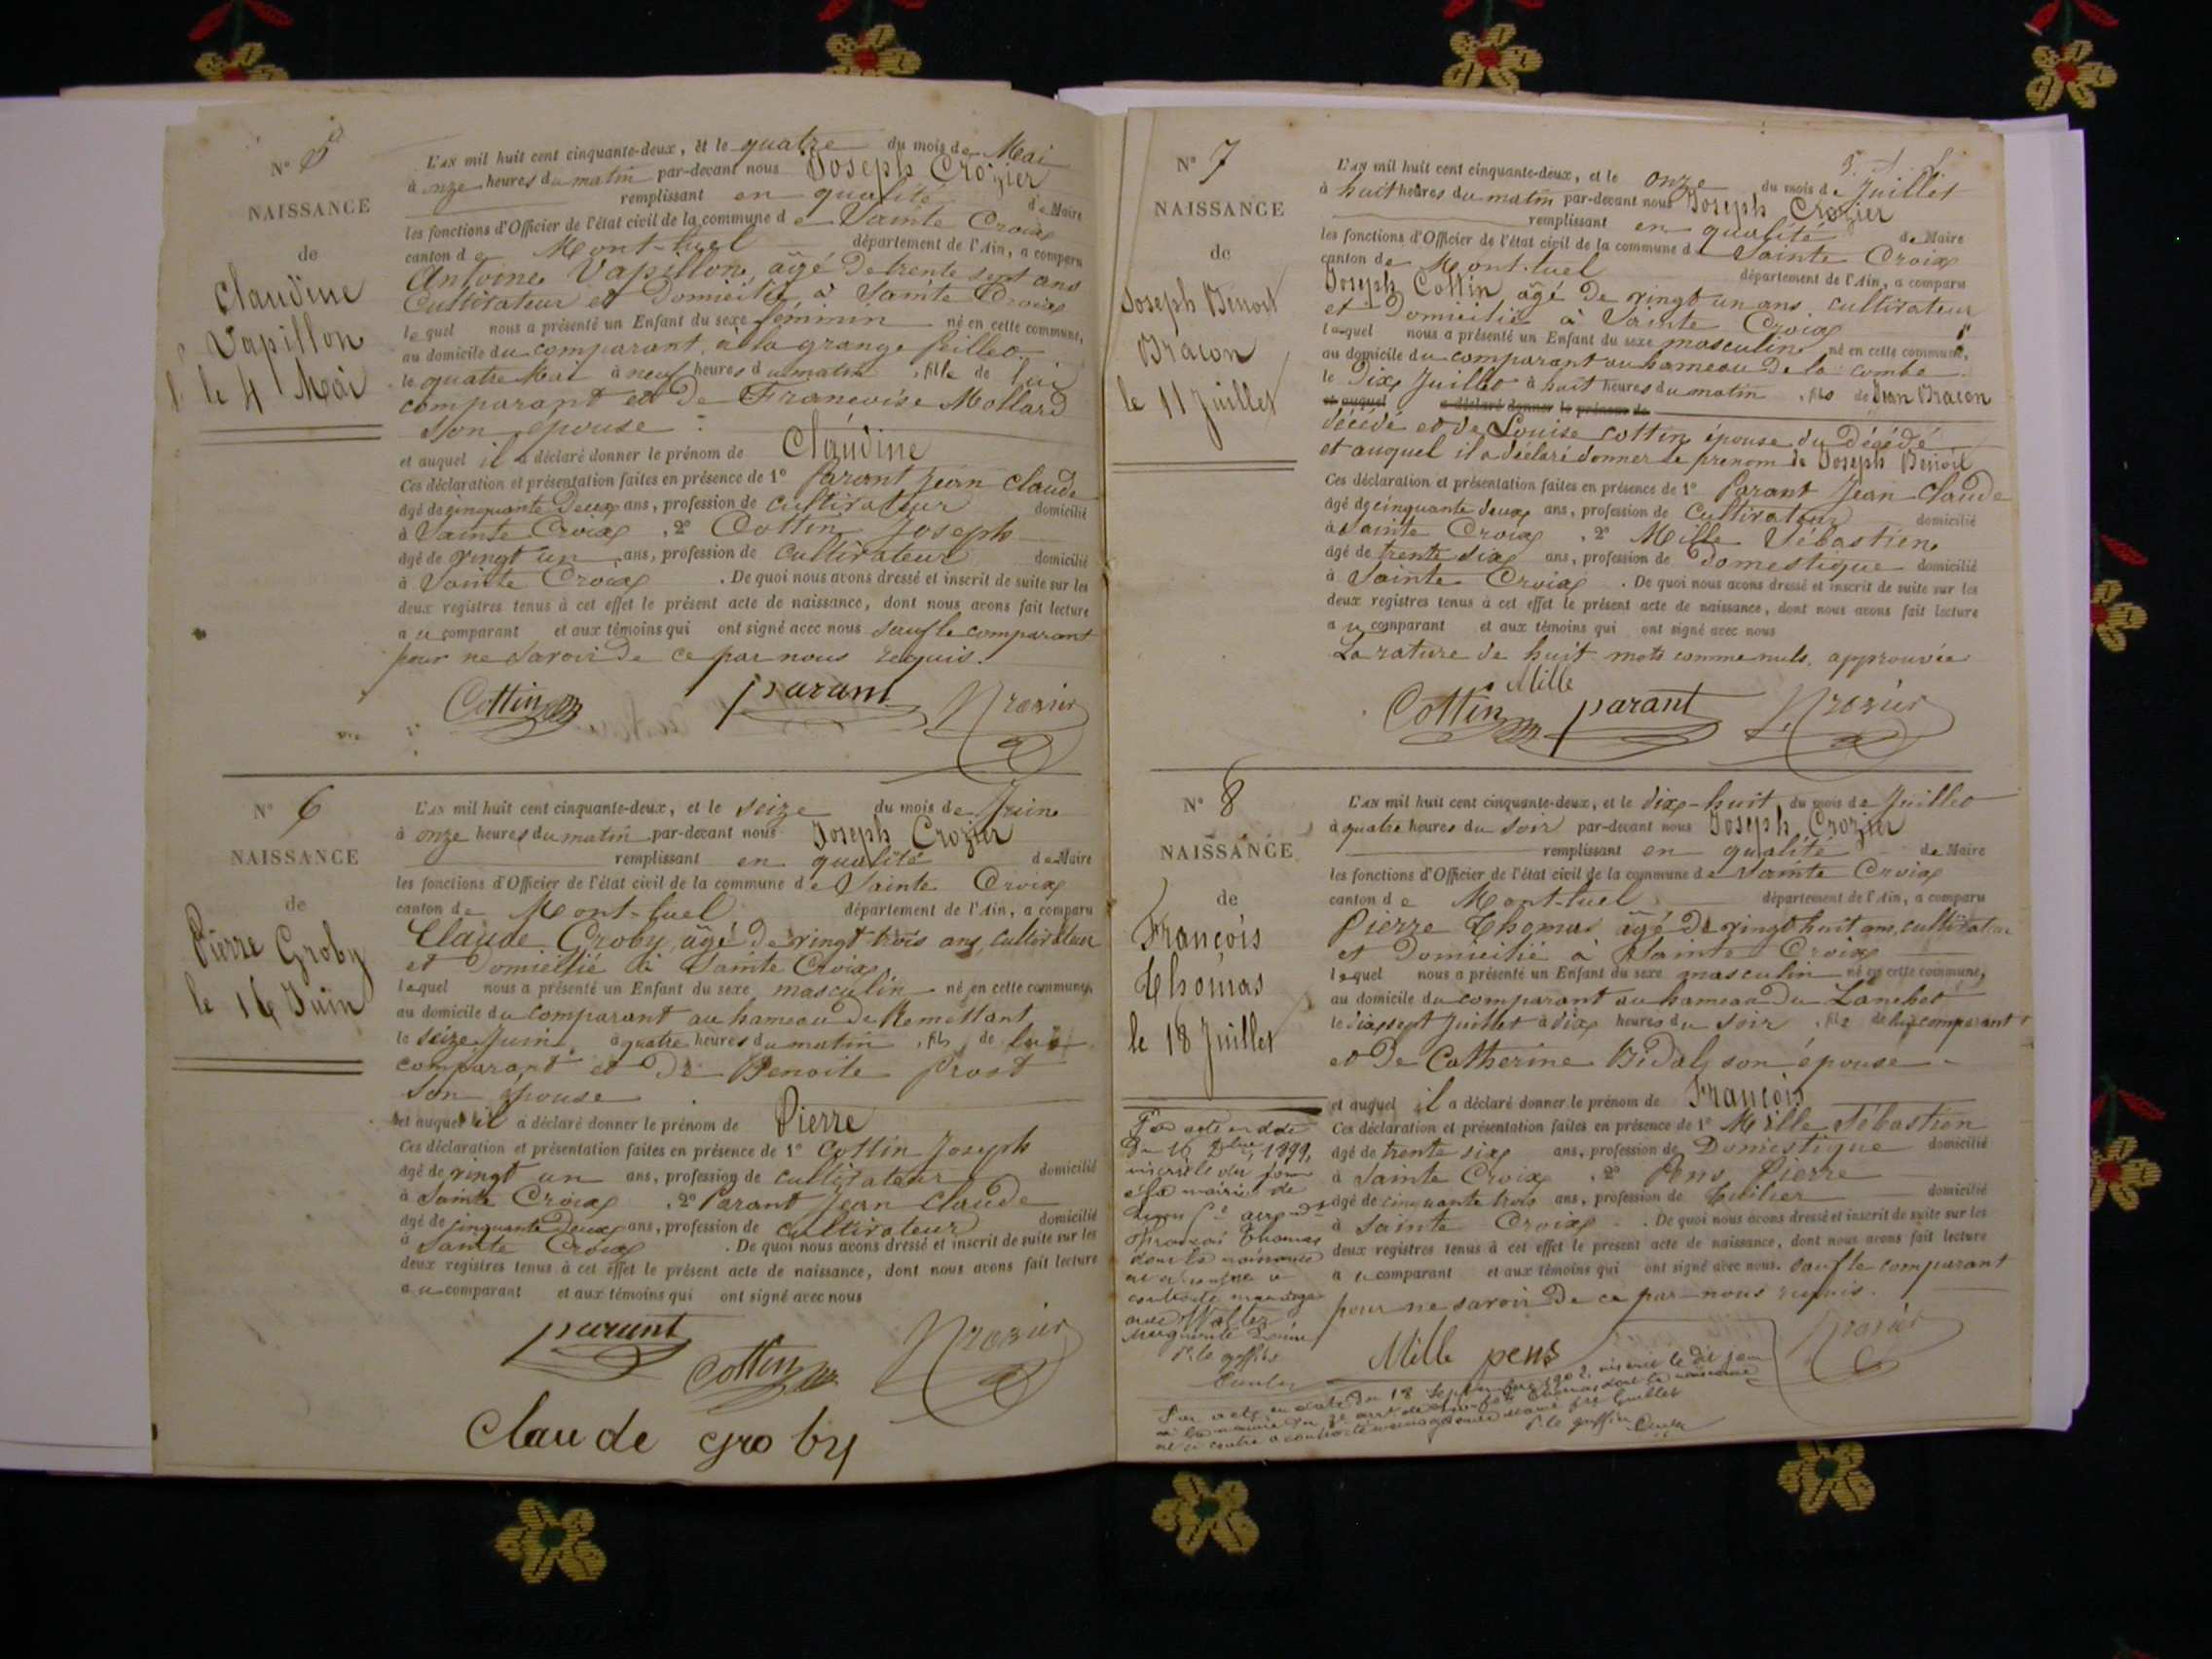 N° 5
NAISSANCE
de
Claudine
Vapillon
le 4 Mai
L'AN mil huit cent cinquante-deux, et le quatre du mois de Mai
à onze heures du matin par-devant nous Joseph Crozier
remplissant en qualité de Maire
les fonctions d'Officier de l'état civil de la commune de Sainte Croix
canton de Mont-luel département de l'Ain, a comparu
Antoine Vapillon, âgé de trente sept ans
Cultivateur et domicilié à Sainte Croix
lequel nous a présenté un Enfant du sexe féminin né en cette commune,
au domicile du comparant, à la grange feilles
le quatre Mai à neuf heures du matin, fille de lui
comparant et de Francoise Mollard
son épouse
et auquel il a déclaré donner le prénom de Claudine
Ces déclaration et présentation faites en présence de 1° Parant Jean Claude
âgé de cinquante deux ans, profession de cultivateur domicilié
à Sainte Croix, 2° Cottin Joseph
âgé de vingt un ans, profession de cultivateur domicilié
à Sainte Croix. De quoi nous avons dressé et inscrit de suite sur les
deux registres tenus à cet effet le présent acte de naissance, dont nous avons fait lecture
au comparant et aux témoins qui ont signé avec nous sauf le comparant
pour ne savoir de ce par nous requis.
Cottin parant Crozier
N° 6
NAISSANCE
de
Pierre Groby
le 16 Juin
L'AN mil huit cent cinquante-deux, et le seize du mois de Juin
à onze heures du matin par-devant nous Joseph Crozier
remplissant en qualité de Maire
les fonctions d'Officier de l'état civil de la commune de Sainte Croix
canton de Mont-luel département de l'Ain, a comparu
Claude Groby âgé de vingt trois ans, cultivateur
et domicilié à Sainte Croix
lequel nous a présenté un Enfant du sexe masculin né en cette commune,
au domicile du comparant au hameau de Romettant
le seize Juin à quatre heures du matin, fils de lui
comparant et de Benoite Prost
son épouse
et auquel il a déclaré donner le prénom de Pierre
Ces déclaration et présentation faites en présence de 1° Cottin Joseph
âgé de vingt un ans, profession de cultivateur domicilié
à Sainte Croix, 2° Parant Jean Claude
âgé de cinquante deux ans, profession de cultivateur domicilié
à Sainte Croix. De quoi nous avons dressé et inscrit de suite sur les
deux registres tenus à cet effet le présent acte de naissance, dont nous avons fait lecture
au comparant et aux témoins qui ont signé avec nous
parant Cottin Crozier
Claude groby
N° 7
NAISSANCE
de
Joseph Benoit
Bracon
le 11 Juillet
L'AN mil huit cent cinquante-deux, et le onze du mois de Juillet
à huit heures du matin par-devant nous Joseph Crozier
remplissant en qualité de Maire
les fonctions d'Officier de l'état civil de la commune de Sainte Croix
canton de Mont-luel département de l'Ain, a comparu
Joseph Cottin âgé de vingt un ans, cultivateur
et domicilié à Sainte Croix
lequel nous a présenté un Enfant du sexe masculin né en cette commune,
au domicile du comparant au hameau de la combe
le dix Juillet à huit heures du matin, fils de Jean Bracon
et auquel a déclaré donner le prénom de
décédé et de Louise Cottin épouse du décédé
et auquel il a déclaré donner le prenom de Joseph Benoit
Ces déclaration et présentation faites en présence de 1° Parant Jean Claude
âgé de cinquante deux ans, profession de cultivateur domicilié
à Sainte Croix, 2° Mille Sébastien
âgé de trente six ans, profession de domestique domicilié
à Sainte Croix. De quoi nous avons dressé et inscrit de suite sur les
deux registres tenus à cet effet le présent acte de naissance, dont nous avons fait lecture
au comparant et aux témoins qui ont signé avec nous
La rature de huit mots comme nuls, approuvée
Mille
Cottin parant Crozier
N° 8
NAISSANCE
de
François
Thomas
le 18 Juillet
L'AN mil huit cent cinquante-deux, et le dix-huit du mois de Juillet
à quatre heures du soir par-devant nous Joseph Crozier
remplissant en qualité de Maire
les fonctions d'Officier de l'état civil de la commune de Sainte Croix
canton de Mont-luel département de l'Ain, a comparu
Pierre Thomas âgé de vingt huit ans, cultivateur
et domicilié à Sainte Croix
lequel nous a présenté un Enfant du sexe masculin né en cette commune,
au domicile du comparant au hameau du Lanchet
le dix sept Juillet à dix heures du soir, fils de lui comparant
et de Catherine Bidal son épouse
et auquel il a déclaré donner le prénom de François
Ces déclaration et présentation faites en présence de 1° Mille Sébastien
âgé de trente six ans, profession de Domestique domicilié
à Sainte Croix, 2° Pens Pierre
âgé de cinquante trois ans, profession de tuilier domicilié
à Sainte Croix. De quoi nous avons dressé et inscrit de suite sur les
deux registres tenus à cet effet le présent acte de naissance, dont nous avons fait lecture
au comparant et aux témoins qui ont signé avec nous. sauf le comparant
pour ne savoir de ce par nous requis.
Mille pens Crozier
Par acte en date
du 16 1899,
inscrit le du jour
à la mairie de
Thomas
dont la naissance
contracté mariage
avec
Marguerite
P. le greffier
Par acte en date du 18 Septembre 1902 inscrit le dit jour
à la mairie du 3e arrt de Thomas dont la naissance
est ci contre a contracté mariage avec
P. le greffier